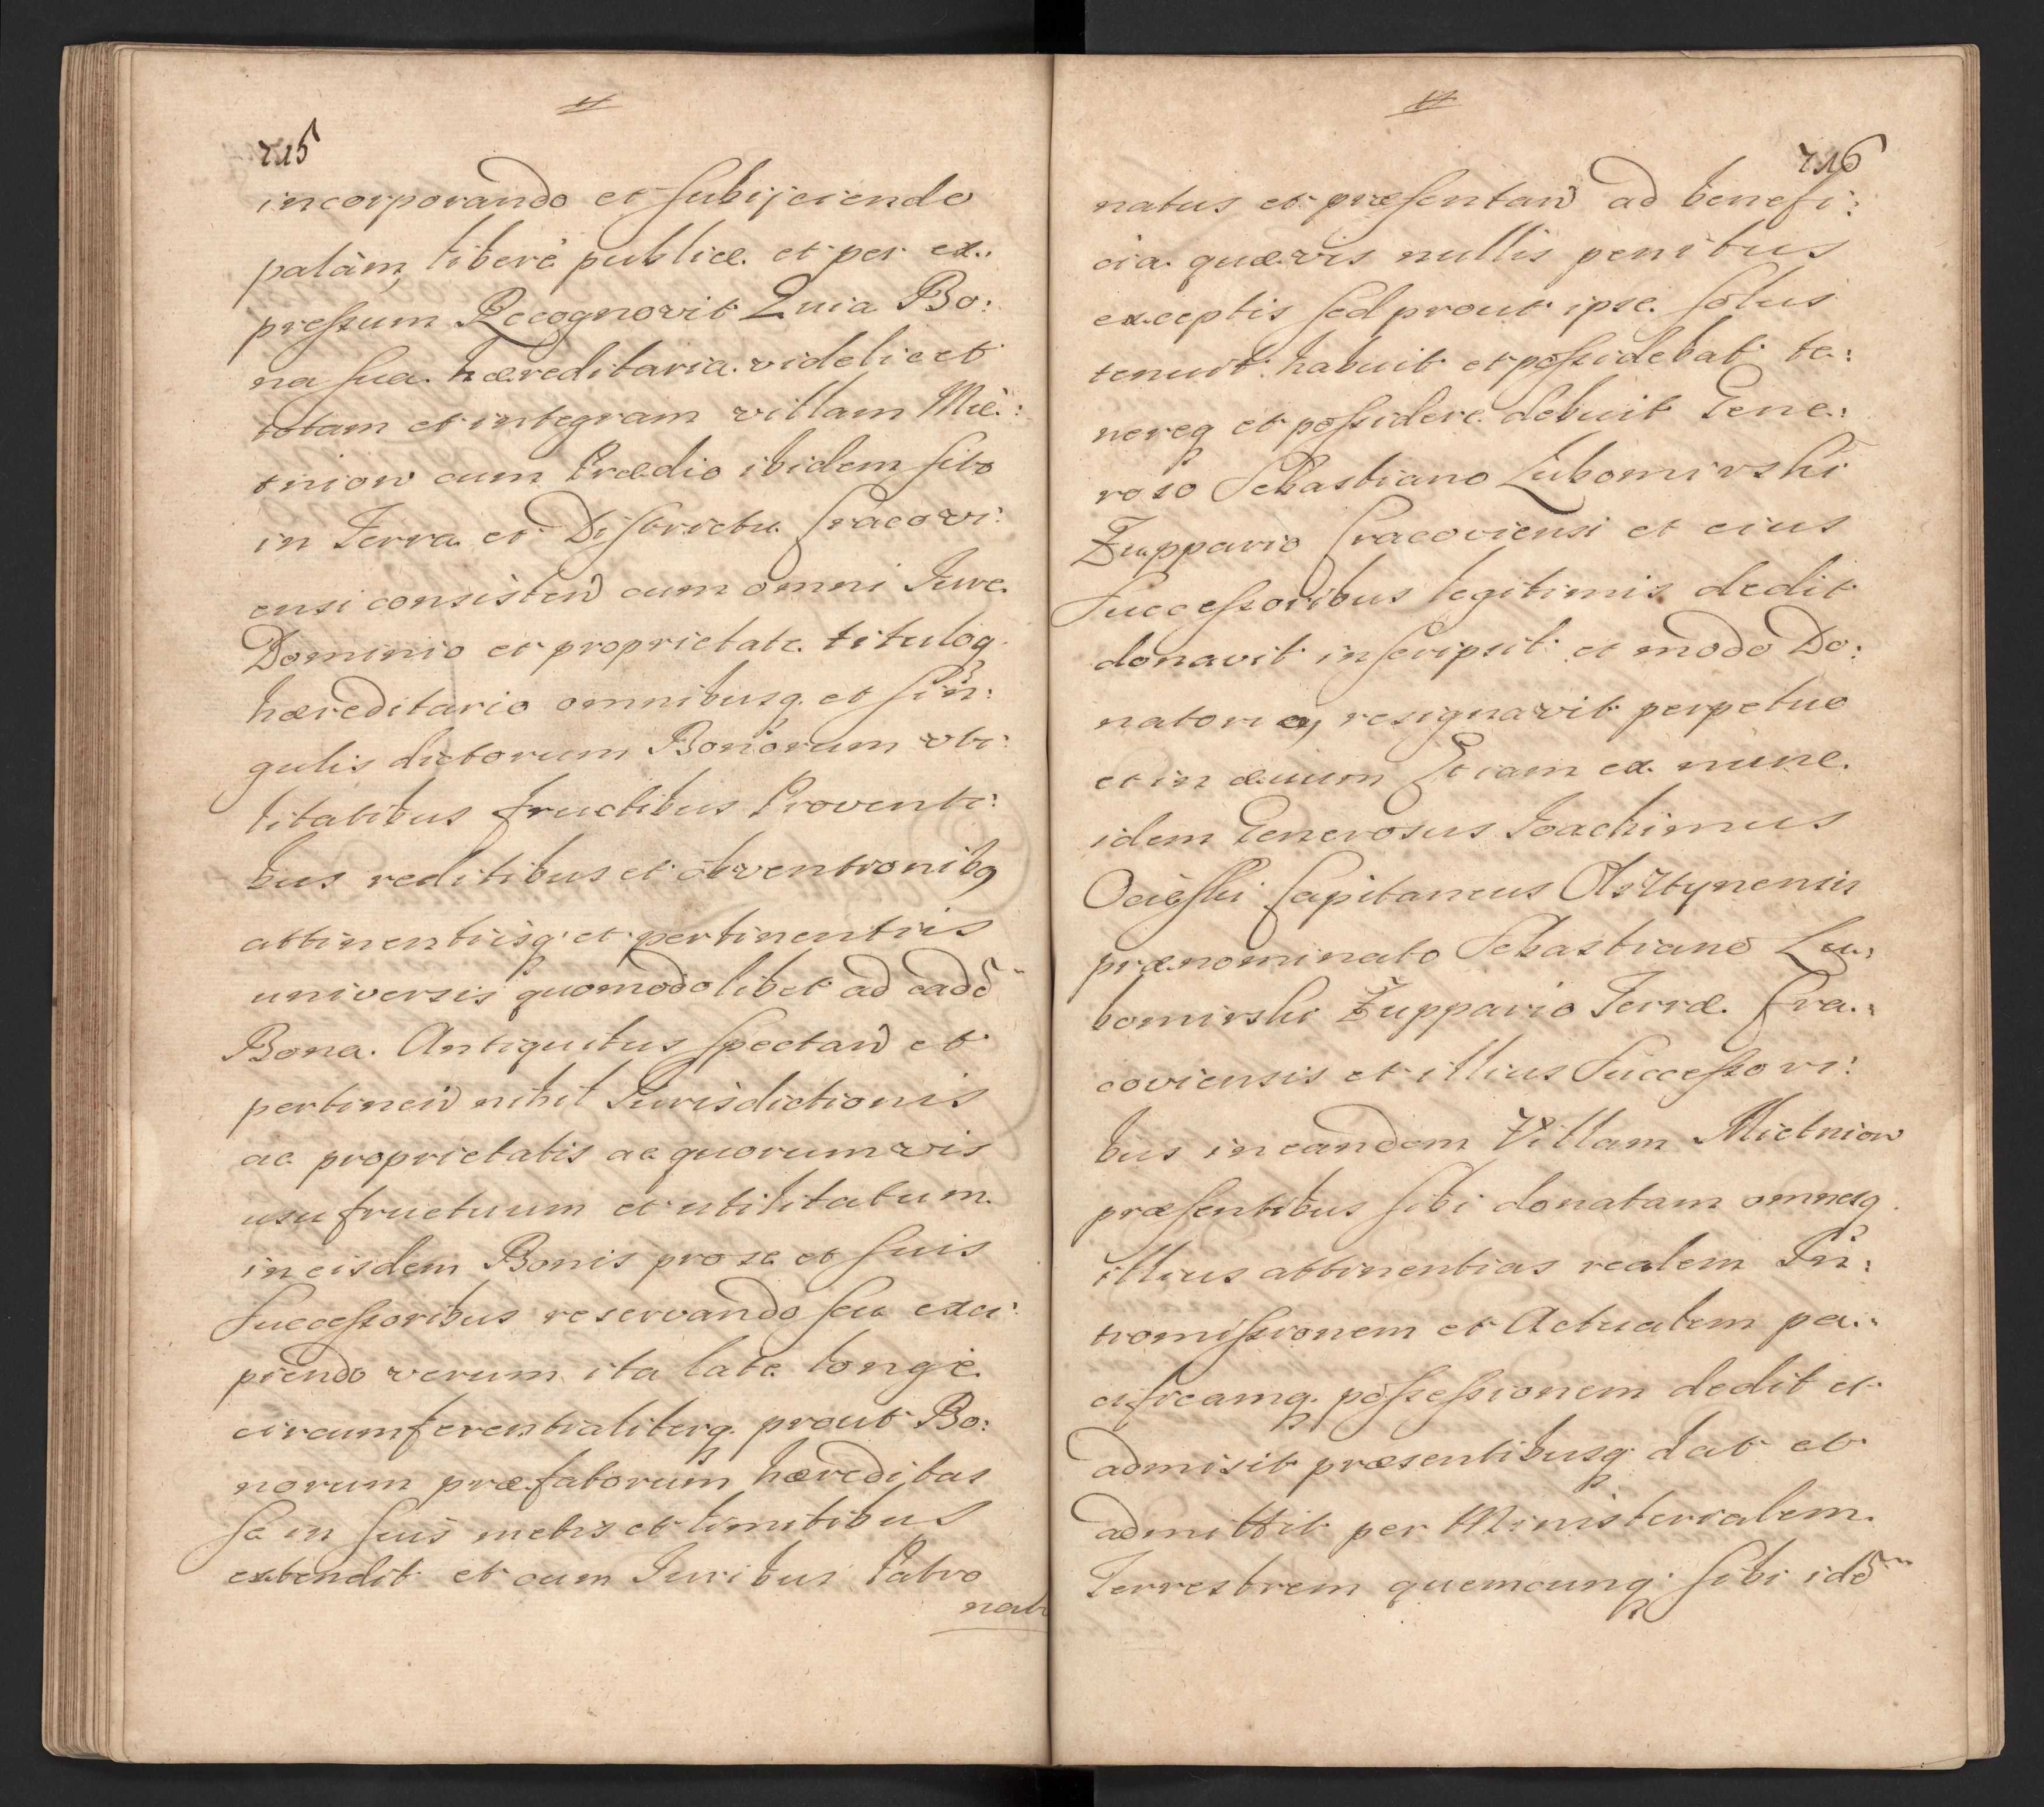 715
incorporando et subijciendo
palàm, liberè publicè et per ex:
pressum Recognovit Quia Bo:
na sua hæreditaria videlicet
totam et integram villam Mie:
tniow cum Prædio ibidem sito
in Terra et Districtu Cracovi:
ensi consisten cum omni Iure
Dominio et proprietate tituloq
hæreditario omnibusq et sin:
gulis dictorum Bonorum uti:
litatibus fructibus Proventi:
bus reditibus et obventionibq
attinentiisq et pertinentiis
universis quomodolibet ad eadē
Bona Antiquitus spectan et
pertinen nihil Iurisdictionis
ac proprietatis ac quorumvis
usufructuum et utilitatum
in eisdem Bonis pro se et suis
Successoribus reservando seu exci:
piendo verum ita late longè
circumferentialiterq prout Bo:
norum præfatorum hæreditas
se in suis metis et limitibus
extendit et cum Iuribus Patro
nat
716
natus et præsentan ad benefi:
cia quævis nullis penitus
exceptis sed prout ipse solus
tenuit habuit et possidebat te:
nereq et possidere debuit Gene:
roso Sebastiano Lubomirski
Żuppario Cracoviensi et eius
Successoribus legitimis dedit
donavit inscripsit et modo Do:
natorio resignavit perpetuo
et in ævum Etiam ex nunc
idem Generosus Ioachimus
Ocięski Capitaneus Olsztynensis
prænominato Sebastiano Lu:
bomirski Żuppario Terræ Cra:
coviensis et illius Successori:
bus in eandem Villam Mietniow
præsentibus sibi donatam omnesq
illius attinentias realem In:
tromissionem et Actualem pa:
cificamq possessionem dedit et
admisit præsentibusq dat et
admittit per Ministerialem
Terrestrem quemcunq sibi idē